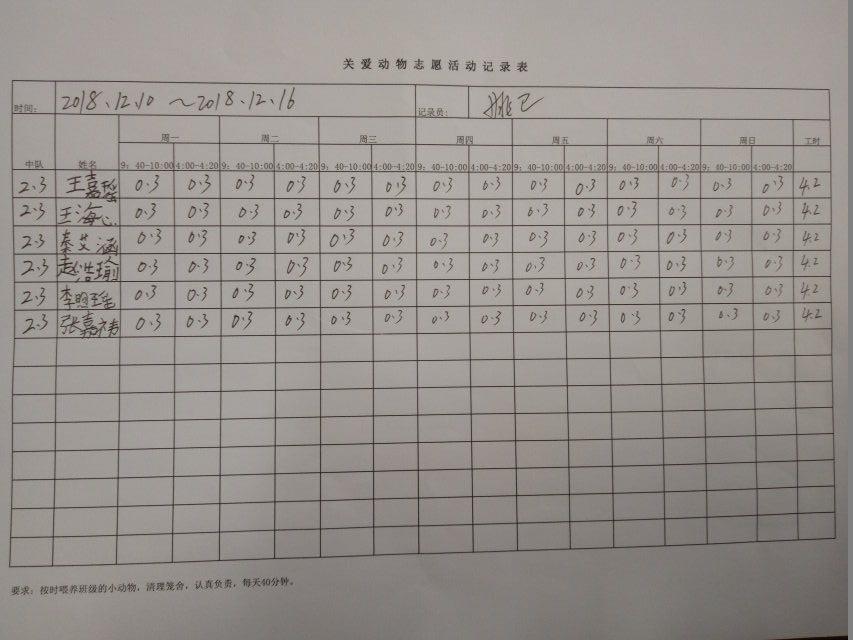 关爱动物志愿活动记录表
时间: 2018.12.10 ~2018.12.16 记录员:
周一 周二 周三 周四 周五 周六 周日 工时
中队 姓名 9：40-10:00 4:00-4:20 9：40-10:00 4:00-4:20 9：40-10:00 4:00-4:20 9：40-10:00 4:00-4:20 9：40-10:00 4:00-4:20 9：40-10:00 4:00-4:20 9：40-10:00 4:00-4:20
2.3 王嘉 0.3 0.3 0.3 0.3 0.3 0.3 0.3 0.3 0.3 0.3 0.3 0.3 0.3 0.3 4.2
2.3 王海心 0.3 0.3 0.3 0.3 0.3 0.3 0.3 0.3 0.3 0.3 0.3 0.3 0.3 0.3 4.2
2.3 秦艾涵 0.3 0.3 0.3 0.3 0.3 0.3 0.3 0.3 0.3 0.3 0.3 0.3 0.3 0.3 4.2
2.3 赵浩瑜 0.3 0.3 0.3 0.3 0.3 0.3 0.3 0.3 0.3 0.3 0.3 0.3 0.3 0.3 4.2
2.3 李照 0.3 0.3 0.3 0.3 0.3 0.3 0.3 0.3 0.3 0.3 0.3 0.3 0.3 0.3 4.2
2.3 张嘉祎 0.3 0.3 0.3 0.3 0.3 0.3 0.3 0.3 0.3 0.3 0.3 0.3 0.3 0.3 4.2
要求：按时喂养班级的小动物，清理笼舍，认真负责，每天40分钟。